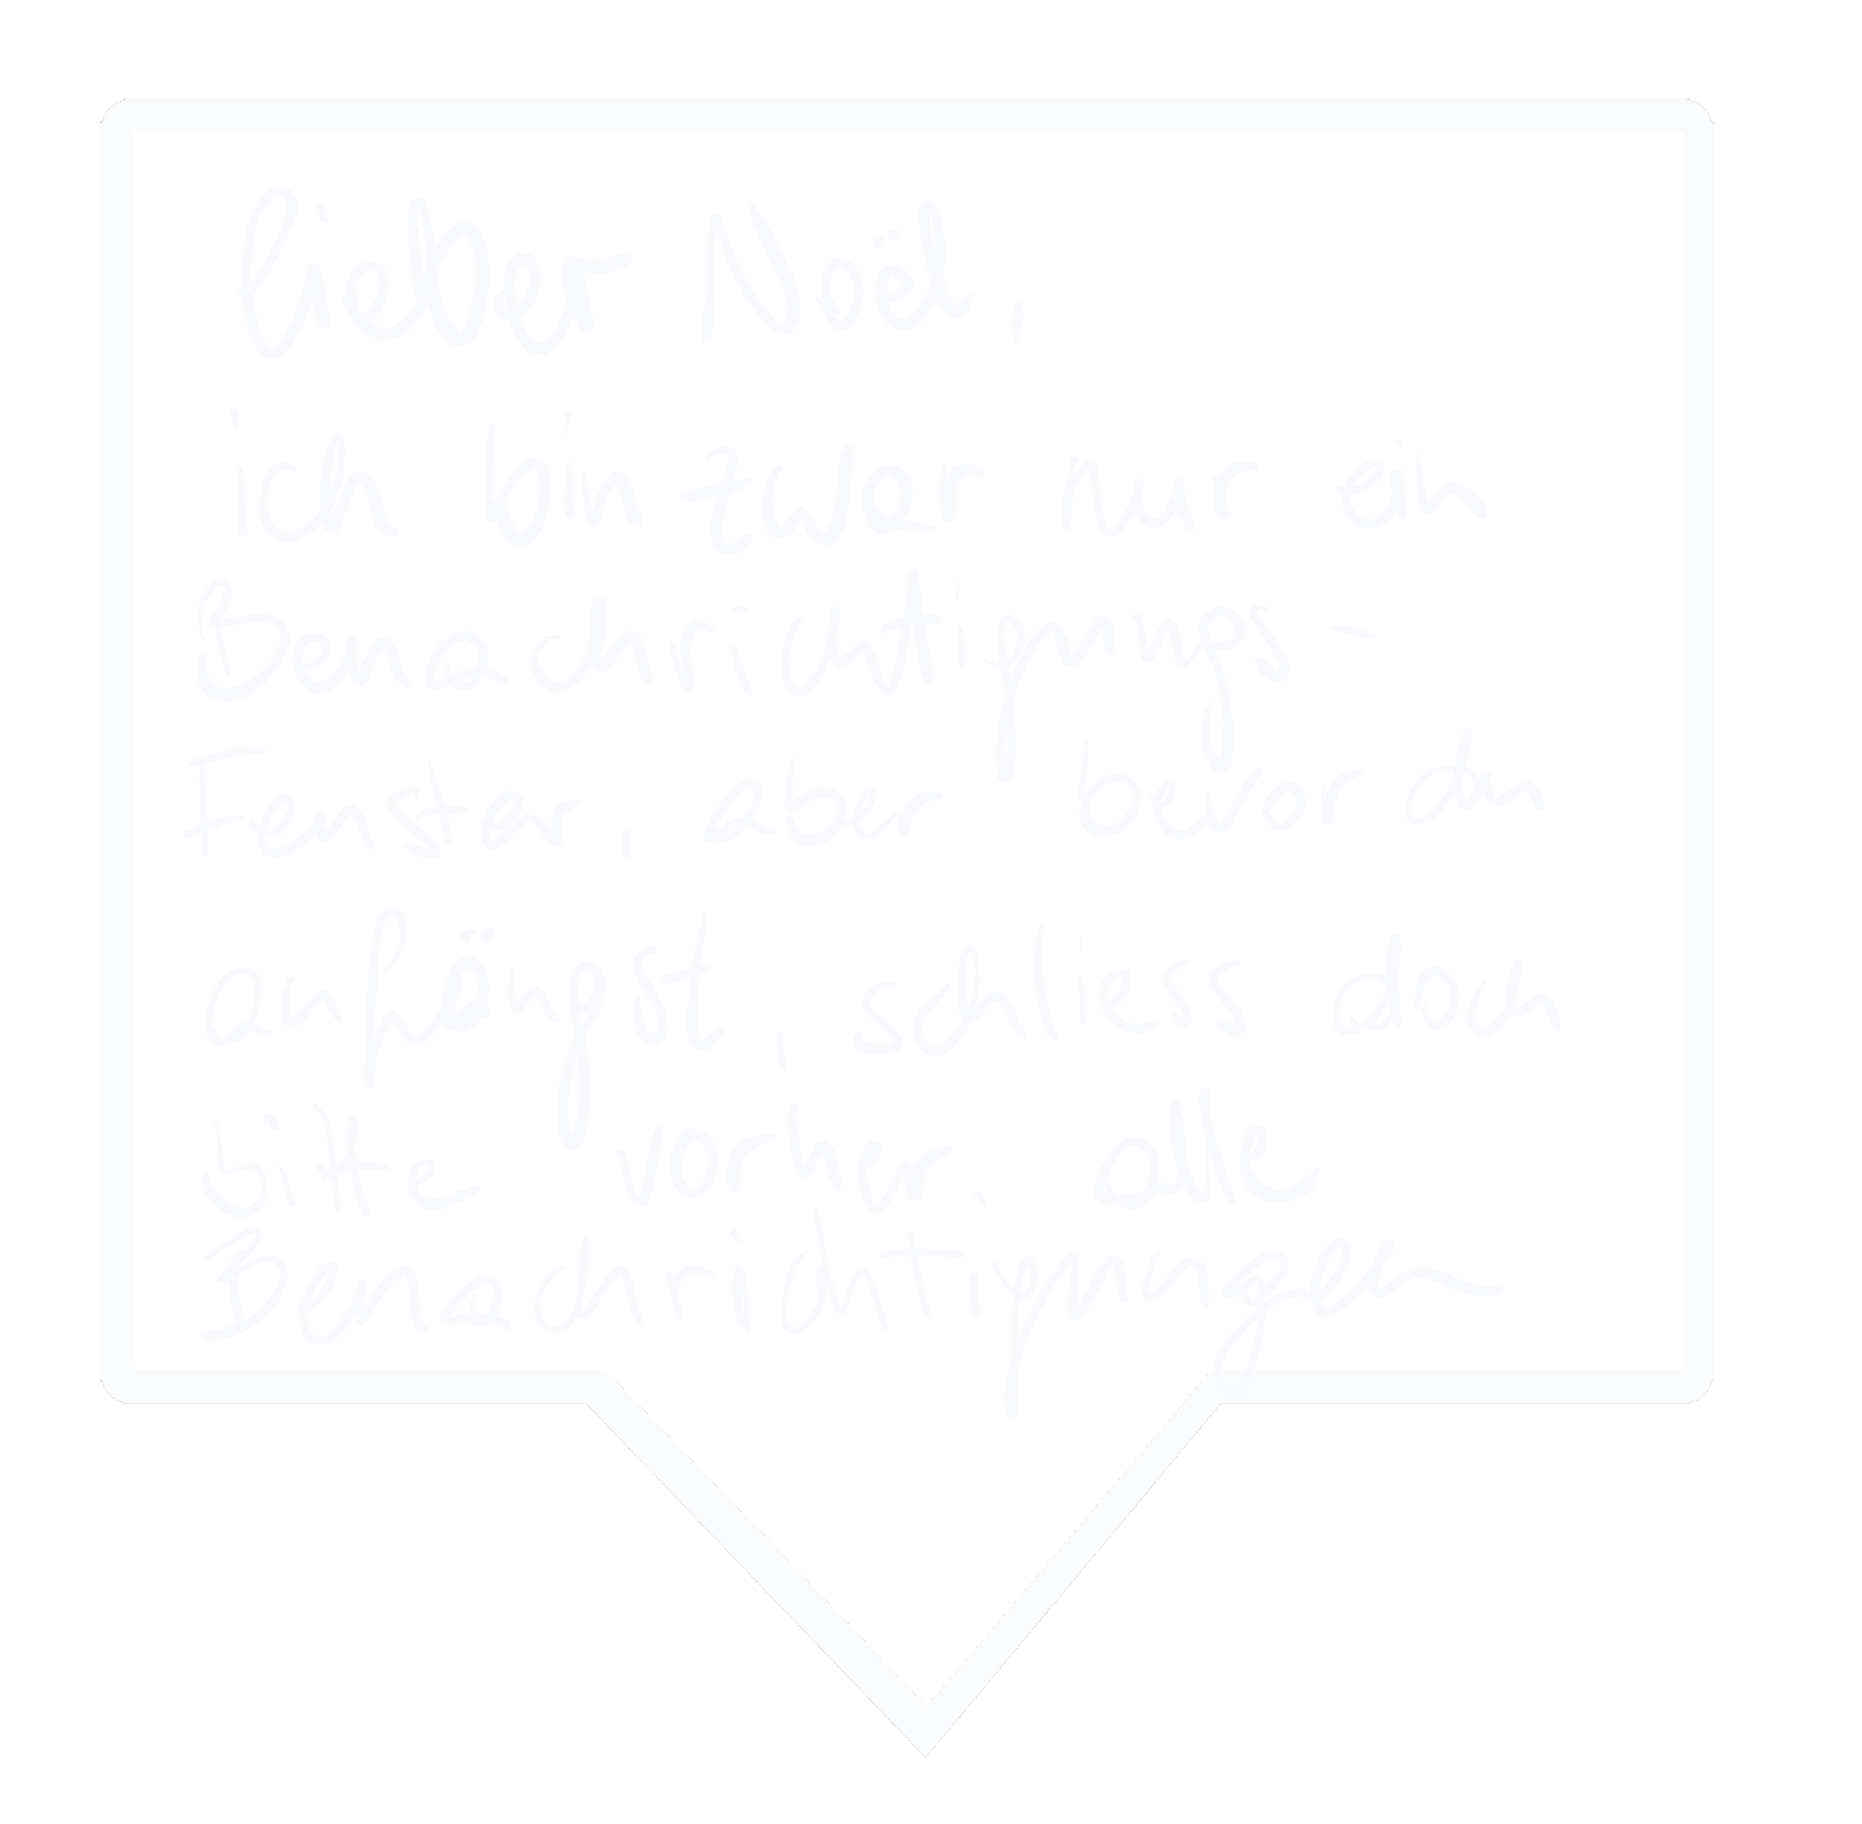 lieber Noël,
ich bin zwar nur ein
Benachrichtigungs-
Fenster, aber bevor du
anhängst, schliess doch
bitte vorher. alle
Benachrichtigungen